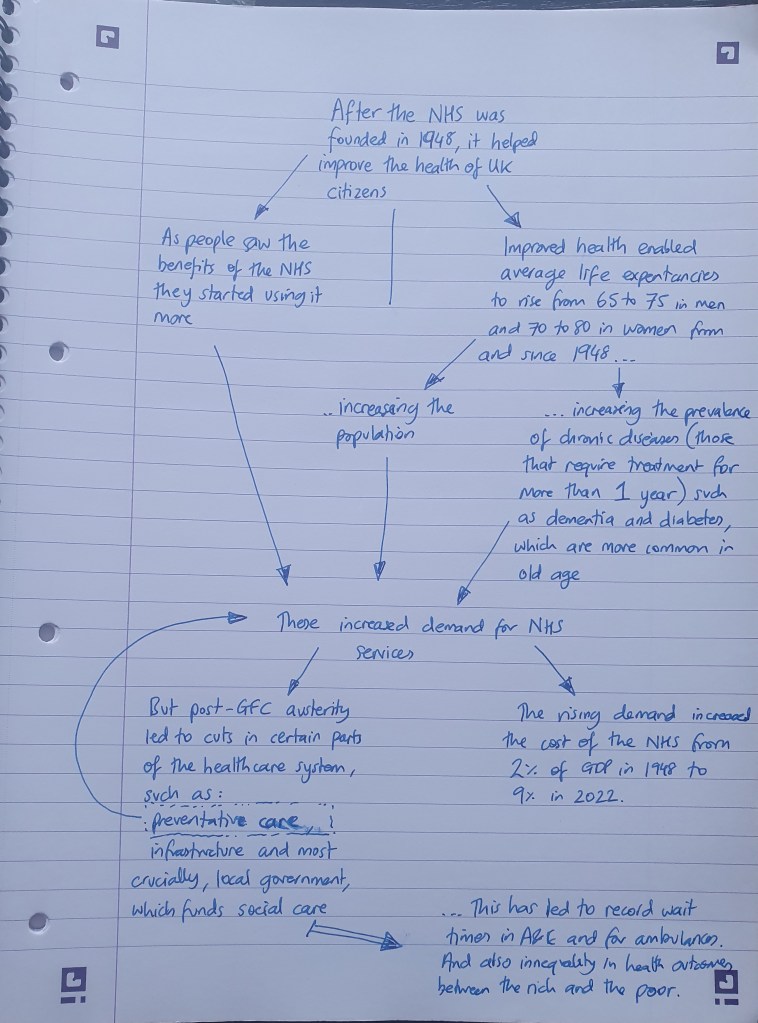 After the NHS was
founded in 1948, it helped
improve the health of UK
citizens
As people saw the
benefits of the NHS
they started using it
more
Improved health enabled
average life expentancies
to rise from 65 to 75 in men
and 70 to 80 in women from
and since 1948...
...increasing the
population
... increasing the prevalance
of chronic diseases (those
that require treatment for
more than 1 year) such
as dementia and diabetes,
which are more common in
old age
These increased demand for NHS
services
But post-GFC austerity
led to cuts in certain parts
of the healthcare system,
such as:
preventative care,
infrastructure and most
crucially, local government,
which funds social care
The rising demand increased
the cost of the NHS from
2% of GDP in 1948 to
9% in 2022.
... This has led to record wait
times in A&E and for ambulances.
And also innequality in health outcomes
between the rich and the poor.